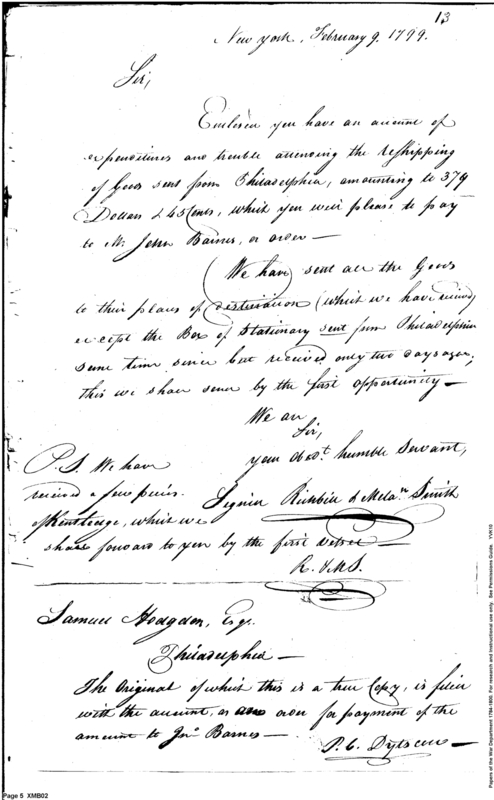 13
New York, February 9. 1799.
Sir,
Enclosed you have an account of
expenditures and trouble attending the reshipping
of Goods sent from Philadelphia, amounting to 379
Dollars & 45 Cents, which you will please to pay
to Mr. John Barnes, or order —
(We have) sent all the Goods
to their places of destination (which we have received)
except the Box of Stationary sent from Philadelphia
some time since but received only two days ago;
this we shall send by the first opportunity —
We are
Sir,
your obedt. humble Servant,
P.S. We have
received a few pieces
of Kentledge, which we
shall forward to you by the first Vessel —
Signed & Melan. Smith
Samuel Hodgdon, Esqr.
Philadelphia —
The Original of which this is a true Copy, is filed
with the account, as an order for payment of the
amount to Jno. Barnes —
Page 5 XMB02
Papers of the War Department 1784-1800. For research and instructional use only. See Permissions Guide. YVK10